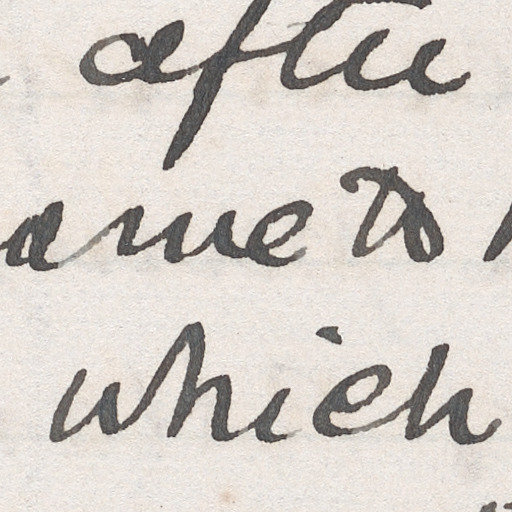 after
ame to
which